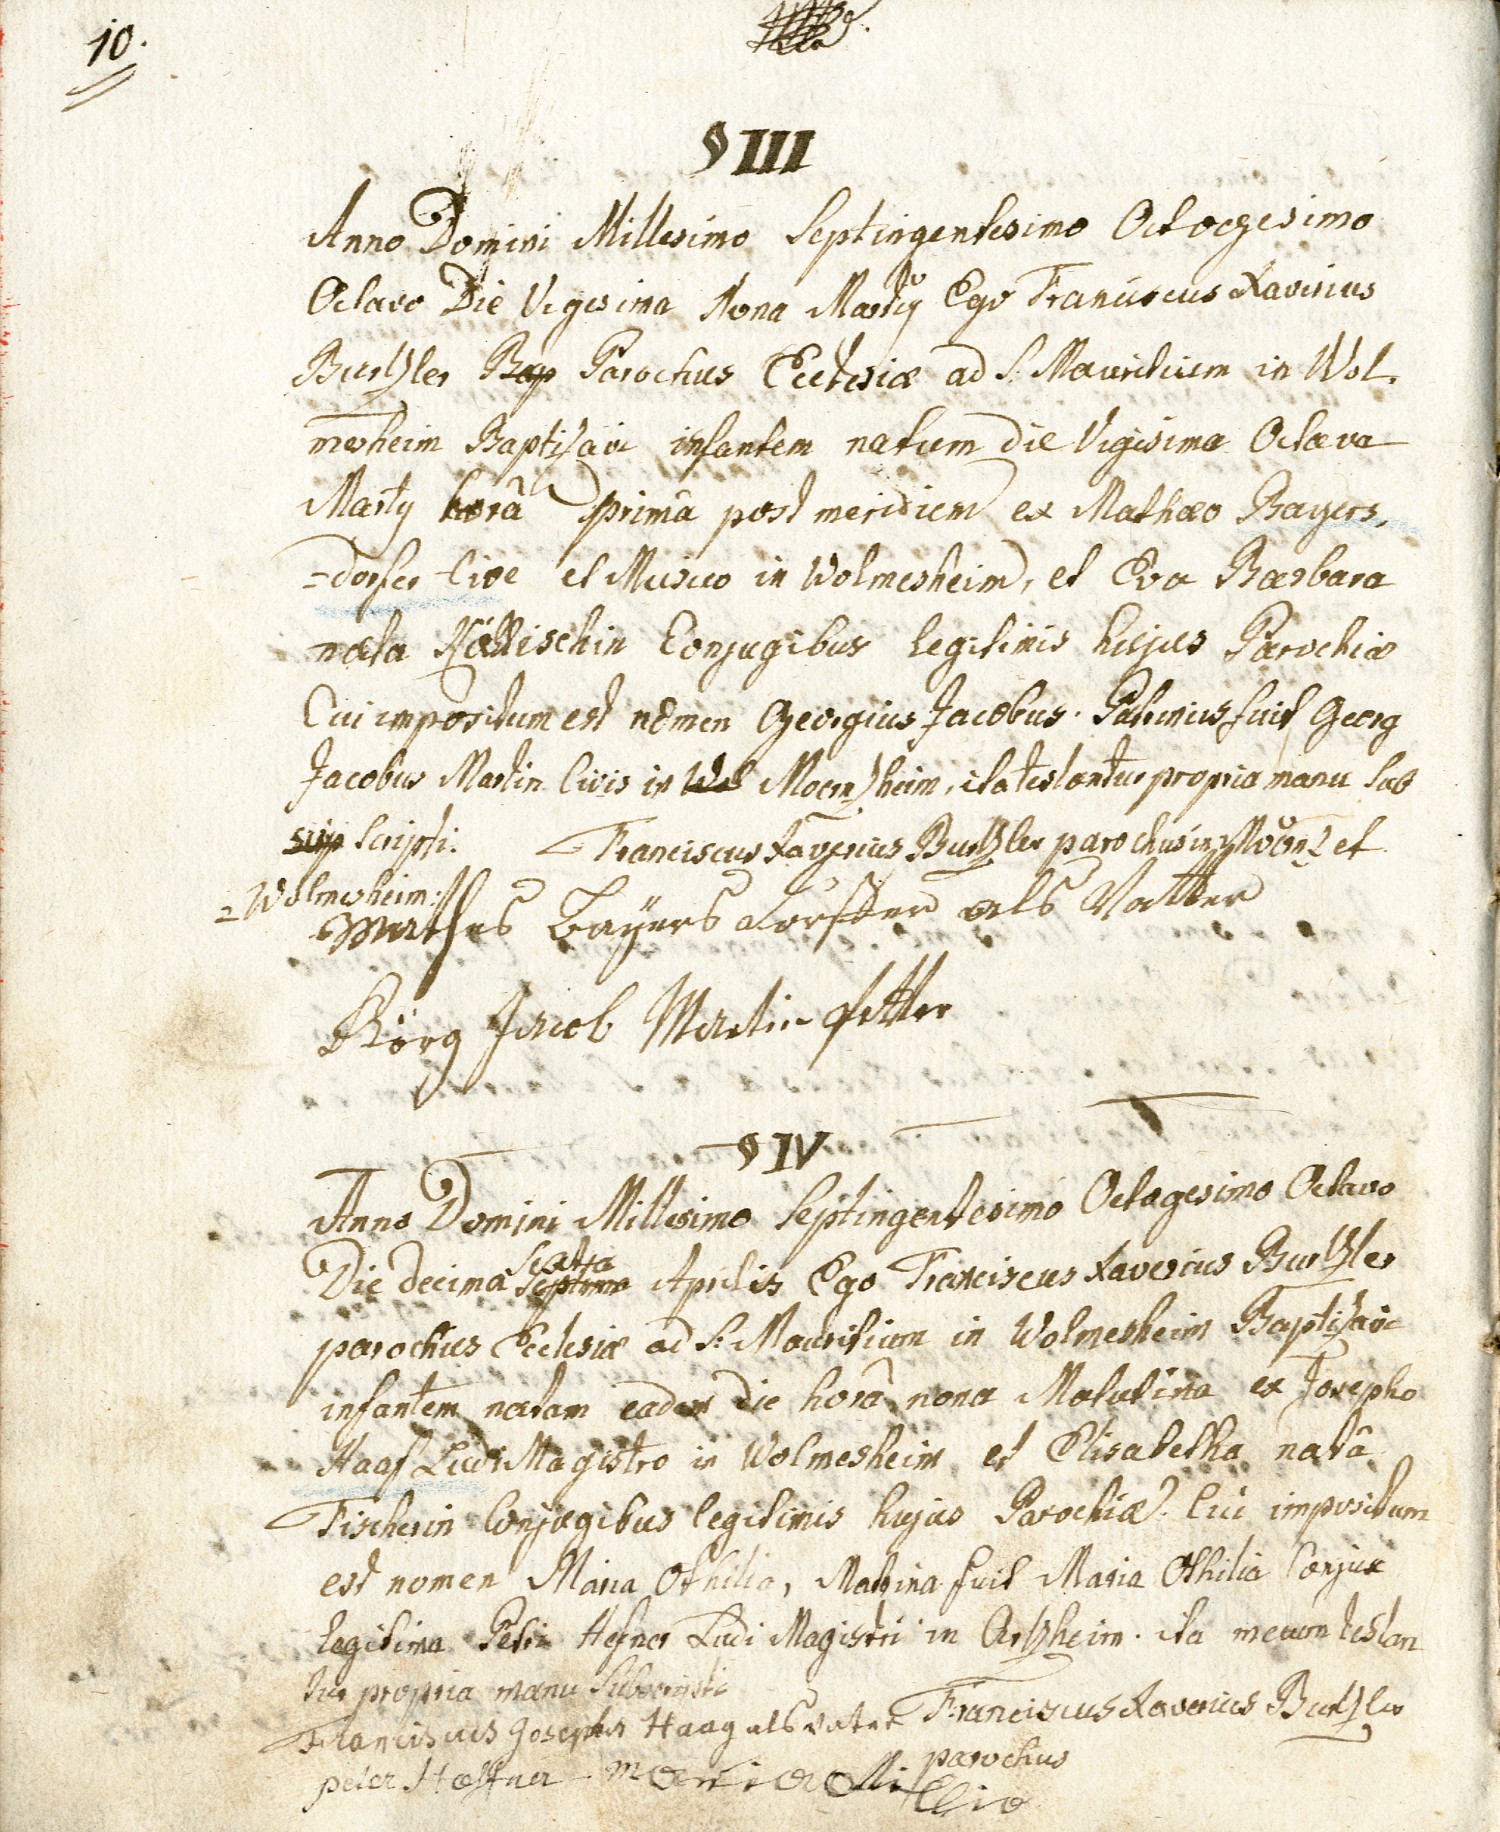 10.
§ III
Anno Domini Millesimo Septingentesimo Octogesimo
Octavo Die Vigesima Nona Martÿ Ego Franciscus Xaverius
Burtzler Parochus Ecclesiæ ad S. Mauritium in Wol-
mesheim Baptisavi infantem natum die Vigisima Octava
Martÿ horâ primâ post meridiem ex Mathæo Bayers,
=dorfer Cive et Musico in Wolmesheim, et Eva Barbara
nata Conjugibus legitimis hujus Parochiæ
Cui impositum est nomen Georgius Jacobus. Patrinus fuit Georg
Jacobus Martin Civis in Moerzheim, ita testantur propria manu sub
scripti. Franciscus Xaverius Burtzler parochus in et
=Wolmesheim.
Mathes Bayersdorffer als Vatter
Körg Jacob Martin Petter
§ IV
Anno Domini Millesimo Septingentesimo Octogesimo Octavo
Sexta
Die decima Septima Aprilis Ego Franciscus Xaverius Burtzler
parochus Ecclesiæ ad S: Mauritium in Wolmesheim Baptisavi
infantem natam eadem die horâ nona Matutina ex Josepho
Haaf Ludi Magistro in Wolmesheim et Elisabetha natâ
Fischerin Conjugibus legitimis hujus Parochiæ. Cui impositum
est nomen Maria Othilia, Matrina fuit Maria Othilia Conjux
legitima Petri Hefner Ludi Magistri in Artzheim. ita mecum testan
tur propria manu Subscripti
Franciscus Joseph Haag als vater Franciscus Xaverius Burtzler
parochus
peter Haffner Maria